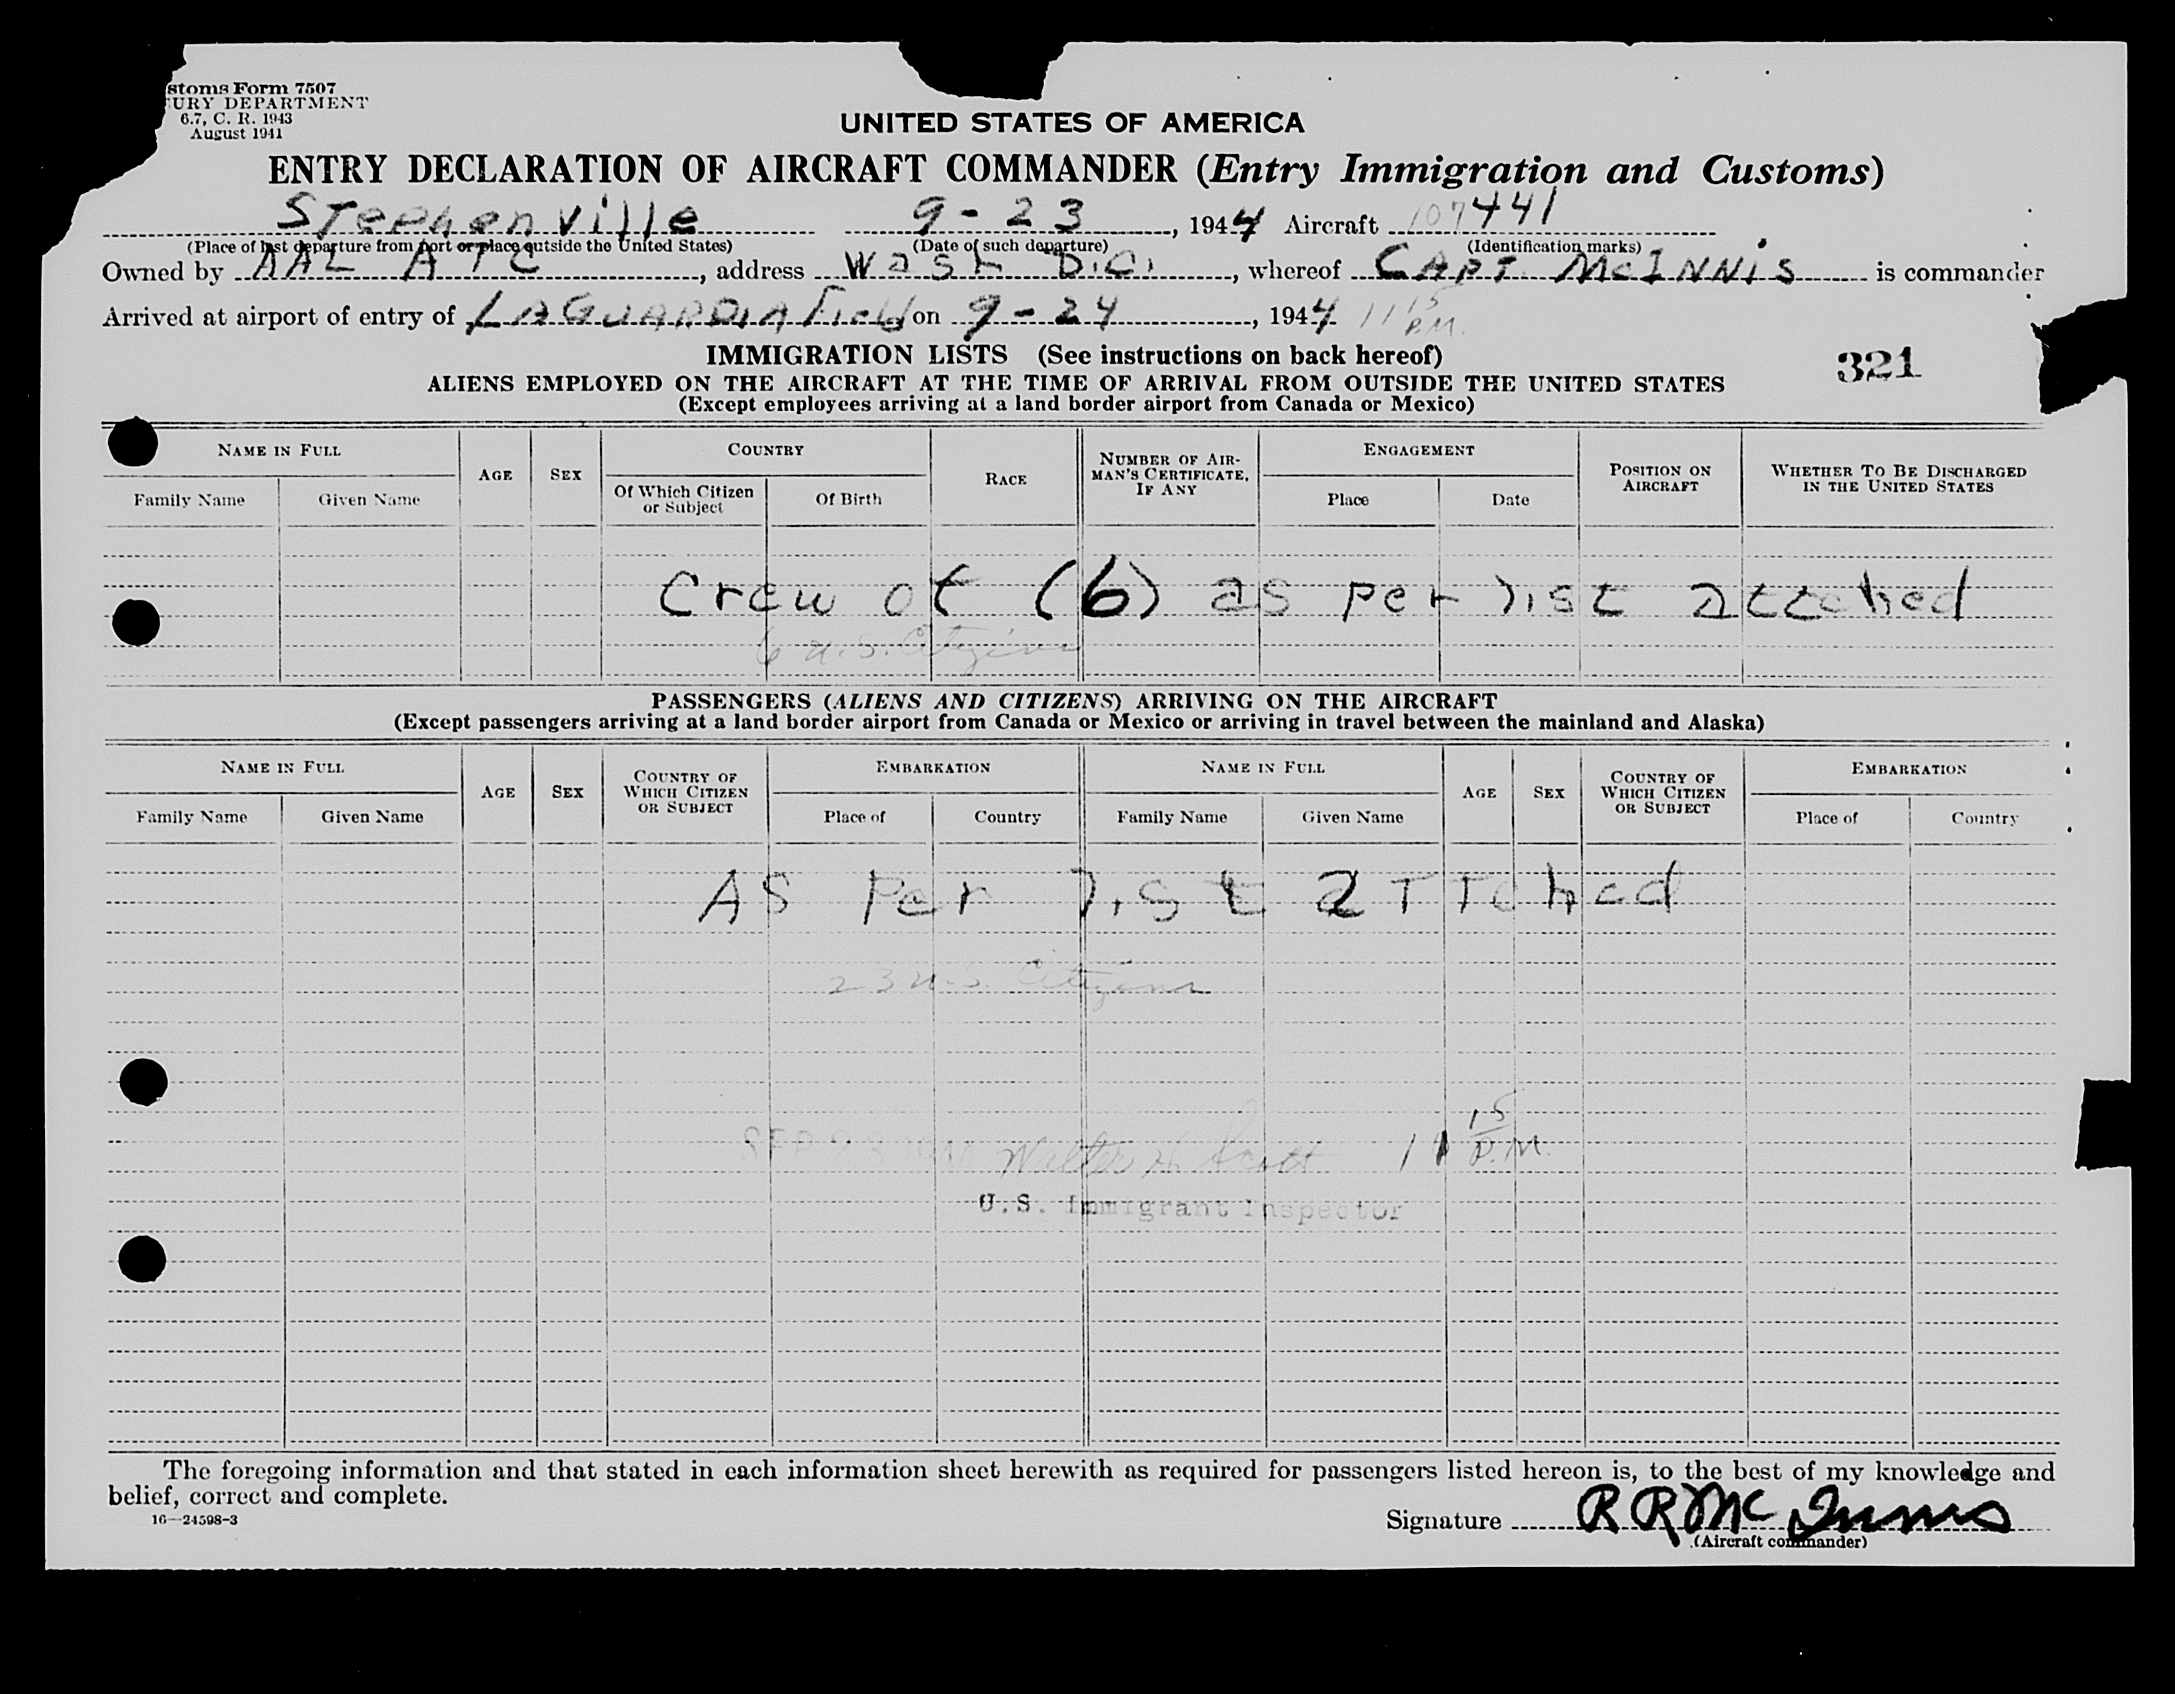 stoms Form 7507
URY DEPARTMENT
6.7, C. R. 1943
August 1941
UNITED STATES OF AMERICA
ENTRY DECLARATION OF AIRCRAFT COMMANDER (Entry Immigration and Customs)
Stephenville 9-23, 1944 Aircraft 107441
(Place of last departure from port or place outside the United States) (Date of such departure) (Identification marks)
Owned by AAL ATC, address Wash D.C., whereof CAPT. McINNIS is commander
Arrived at airport of entry of LAGUARDIA Field on 9-24, 1944 11 15 P.M.
IMMIGRATION LISTS (See instructions on back hereof)
321
ALIENS EMPLOYED ON THE AIRCRAFT AT THE TIME OF ARRIVAL FROM OUTSIDE THE UNITED STATES
(Except employees arriving at a land border airport from Canada or Mexico)
NAME IN FULL AGE SEX COUNTRY RACE NUMBER OF AIR-MAN'S CERTIFICATE, IF ANY ENGAGEMENT POSITION ON AIRCRAFT WHETHER TO BE DISCHARGED IN THE UNITED STATES
Family Name Given Name Of Which Citizen or Subject Of Birth Place Date
Crew of (6) as per list attched
6 U.S. Citizens
PASSENGERS (ALIENS AND CITIZENS) ARRIVING ON THE AIRCRAFT
(Except passengers arriving at a land border airport from Canada or Mexico or arriving in travel between the mainland and Alaska)
NAME IN FULL AGE SEX COUNTRY OF WHICH CITIZEN OR SUBJECT EMBARKATION NAME IN FULL AGE SEX COUNTRY OF WHICH CITIZEN OR SUBJECT EMBARKATION
Family Name Given Name Place of Country Family Name Given Name Place of Country
AS Per list attched
23 U.S. Citizens
SEP 23 Walter H. Scott 11 15 P.M.
U.S. Immigrant Inspector
The foregoing information and that stated in each information sheet herewith as required for passengers listed hereon is, to the best of my knowledge and
belief, correct and complete.
16—24598-3
Signature R R McInnis
(Aircraft commander)